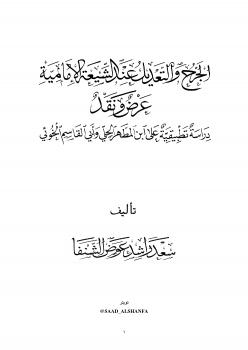 الجرح والتعديل عند الشيعة الإمامية
عرض ونقد
دراسة تطبيقية على ابن المطهر الحلي وأبي القاسم الخوئي
تأليف
سعد راشد عوض الشنفا
تويتر
@SAAD_ALSHANFA
١